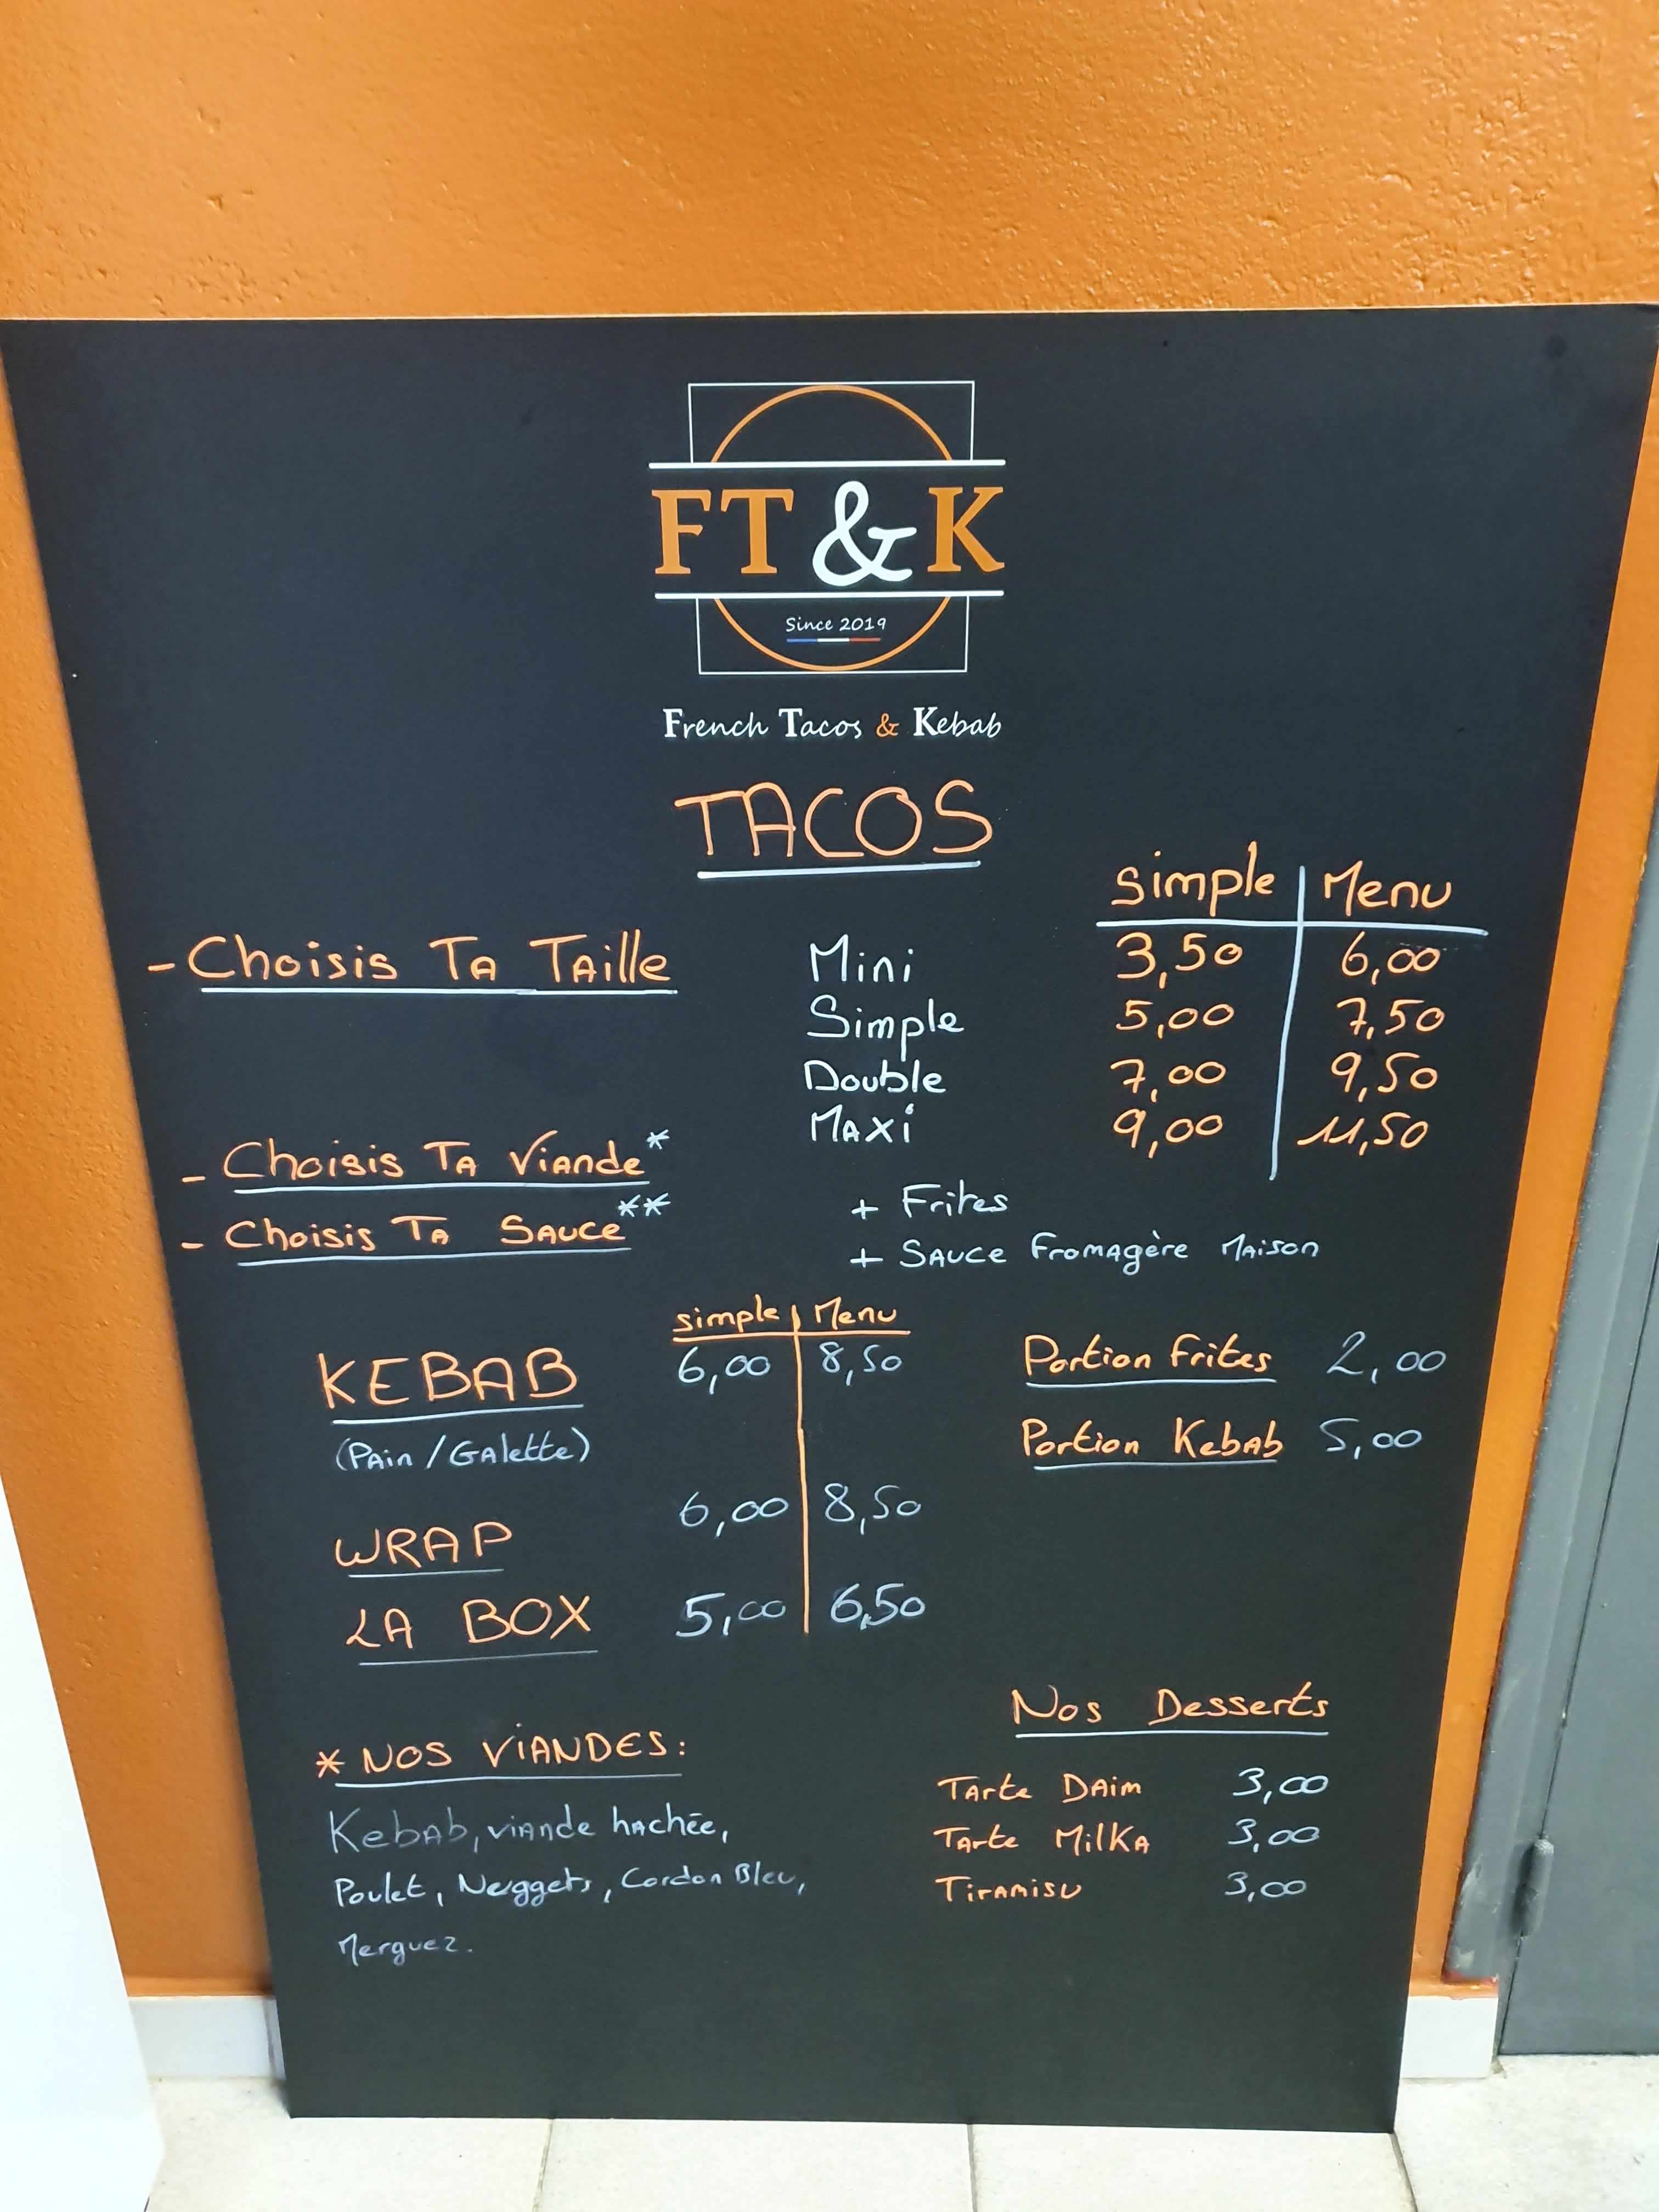 FT & K
Since 2019
French Tacos & Kebab
TACOS
Simple | Menu
- Choisis Ta Taille
Mini 3,50 6,00
Simple 5,00 7,50
Double 7,00 9,50
Maxi 9,00 11,50
- Choisis Ta Viande*
- Choisis Ta Sauce**
+ Frites
+ Sauce Fromagère Maison
simple | Menu
KEBAB 6,00 8,50
(Pain / Galette)
WRAP 6,00 8,50
LA BOX 5,00 6,50
Portion frites 2,00
Portion Kebab 5,00
* NOS VIANDES:
Kebab, viande hachée,
Poulet, Nuggets, Cordon Bleu,
Merguez.
Nos Desserts
Tarte Daim 3,00
Tarte Milka 3,00
Tiramisu 3,00